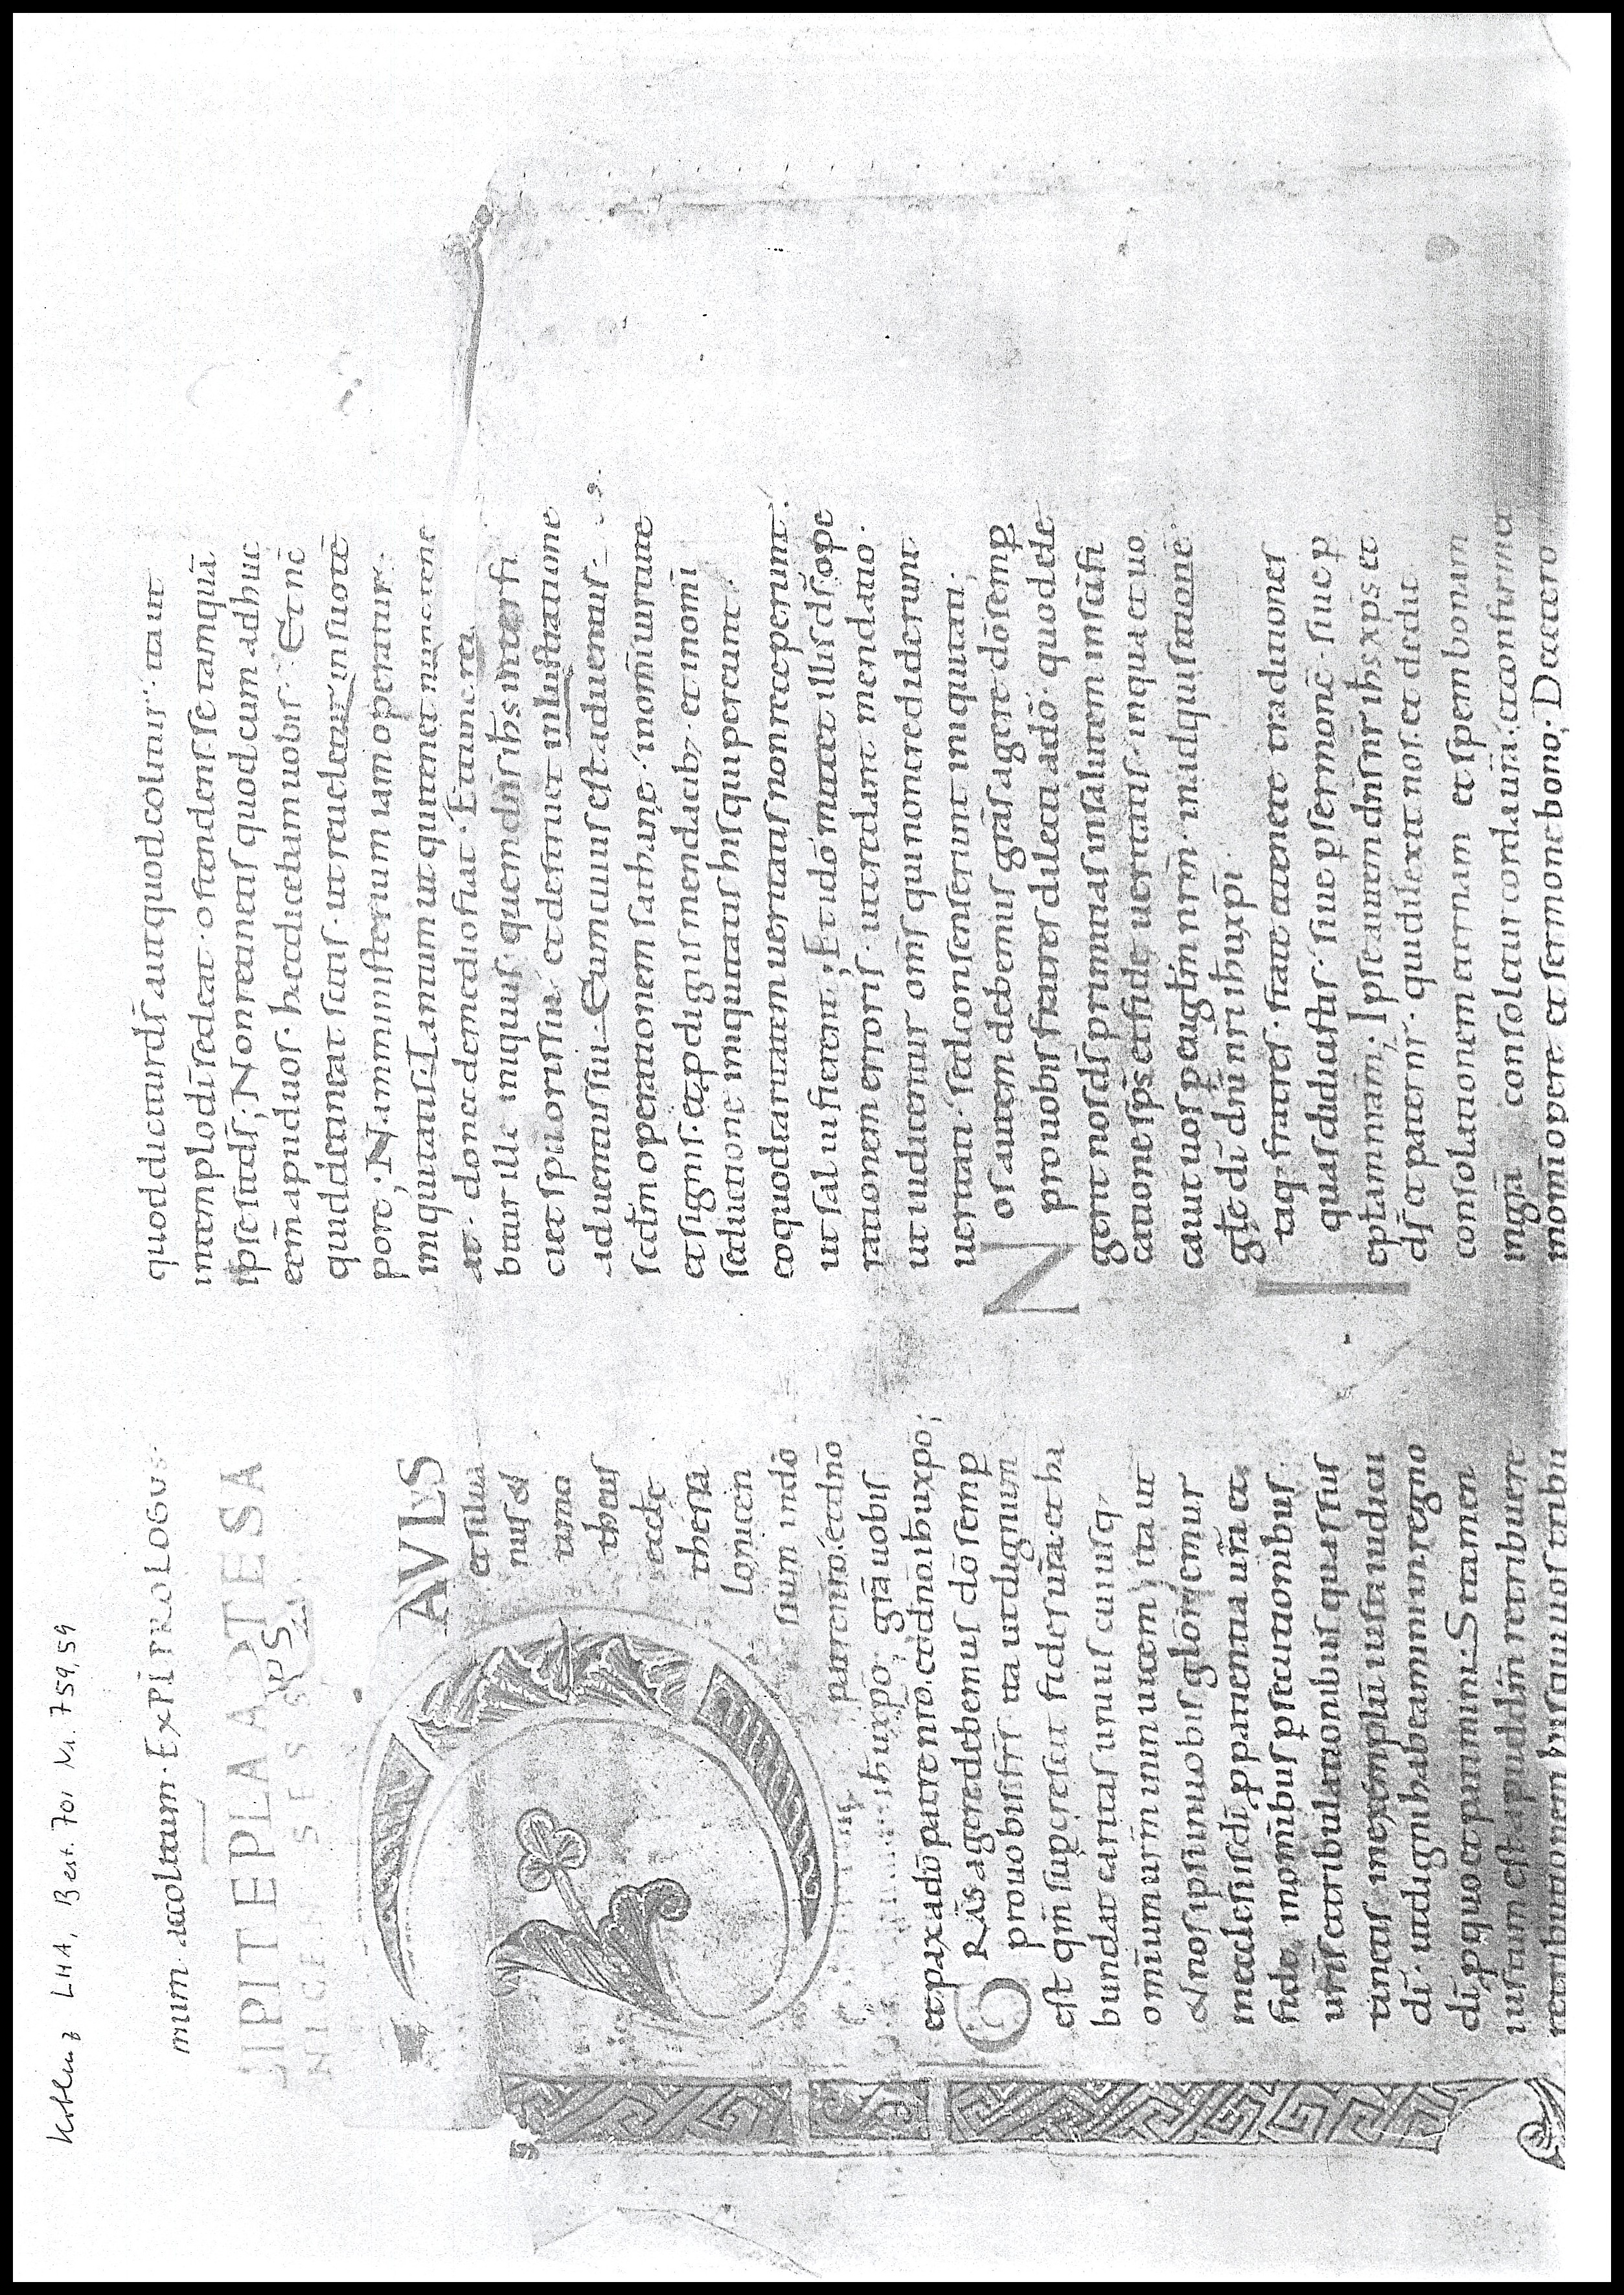 Koblenz LHA, Best. 701 Nr. 759,59
mum acoltaum · EXPL PROLOGVS·
CIPIT EPLA A TESA
NICEN SES S
AVLS
et silua
nus &
timo
theus
eccle
thessa
lonicen
sium in dō
patre nrō et dnō
ihu xpo, grā uobis
et pax a dō patre nrō et dnō ihu xpō;
GRĀS agere debemus dō semp
pro uobis frīs ita ut dignum
est qm̄ supcrescit fides urā et ha
bundat caritas unius cuiusq,
omium urm̄ in inuicem, ita ut
& nos ipsi in uobis gloriemur
in ecclesiis dī, p patientia urā et
fide, in omībus psecutionibus
uris et tribulationibus quas sus
tinetis in exemplū iusti iudicii
dī· ut digni habeamini in regno
dī, p quo et patimini. Si tamen
iustum est apud dm̄ retribuere
retributionem his qui uos tribu
quod dicitur dī aut quod colitur· ita ut
in templo dī sedeat· ostendens se tamquā
ipse sit dī; Non retinetis quod cum adhuc
eēm apud uos· hec dicebam uobis· Et nc̄
quid detineat scitis· ut reueletur in suo tē
pore; Nam ministerium iam operatur
iniquitatis. Tantum ut qui tenet nunc tene
at· donec de medio fiat· Et tunc re
labitur ille iniquus· quem dn̄s ihs interfi
ciet spu oris sui, et destruet inlustratione
aduentus sui. Eum cuius est aduentus
scdm operationem sathanę· in omī uirtute
et signis· et pdigiis mendacib, et in omī
seductione iniquitatis his qui pereunt·
eo quod caritatem ueritatis non receperunt·
ut salui fierent; Et ido mittet illis dī ope
rationem erroris· ut credant mendatio·
ut iudicentur oms̄ qui non crediderunt
ueritati· sed consenserunt iniquitati·
Nos autem debemus grās agere dō semp
pro uobis fratres dilecti a dō· quod ele
gerit nos dī primitias in salutem in scīfi
catione sps̄ et fide ueritatis· in qua et uo
cauit uos p euąḡlm̄ nrm̄· in adquisitionē
glę dī dnī nri ihu xpi·
Itaq, fratres· state et tenete traditiones
quas didicistis· siue p sermonē· siue p
eptam nr̄am; Ipse autem dns̄ nr̄ ihs xps̄ et
dī et pater nr̄· qui dilexit nos· et dedit
consolationem eternam et spem bonam
in grā consoletur corda urā· et confirmet
in omī opere et sermone bono; De cetero